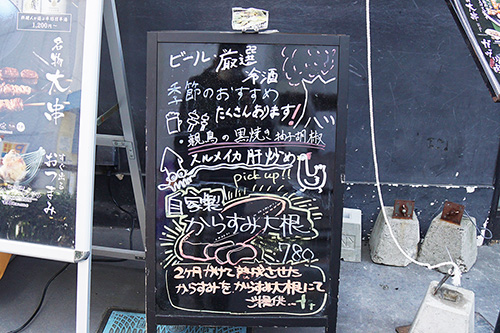 1,200円〜
名物
大串
おつまみ
ビール・厳選
冷酒
季節のおすすめ
たくさんあります!
・親鳥の黒焼き 柚子胡椒
スルメイカ 肝炒め
pick up!!
自家製
からすみ大根
780
2ヶ月かけて熟成させた
からすみをからすみ大根にて
ご提供…